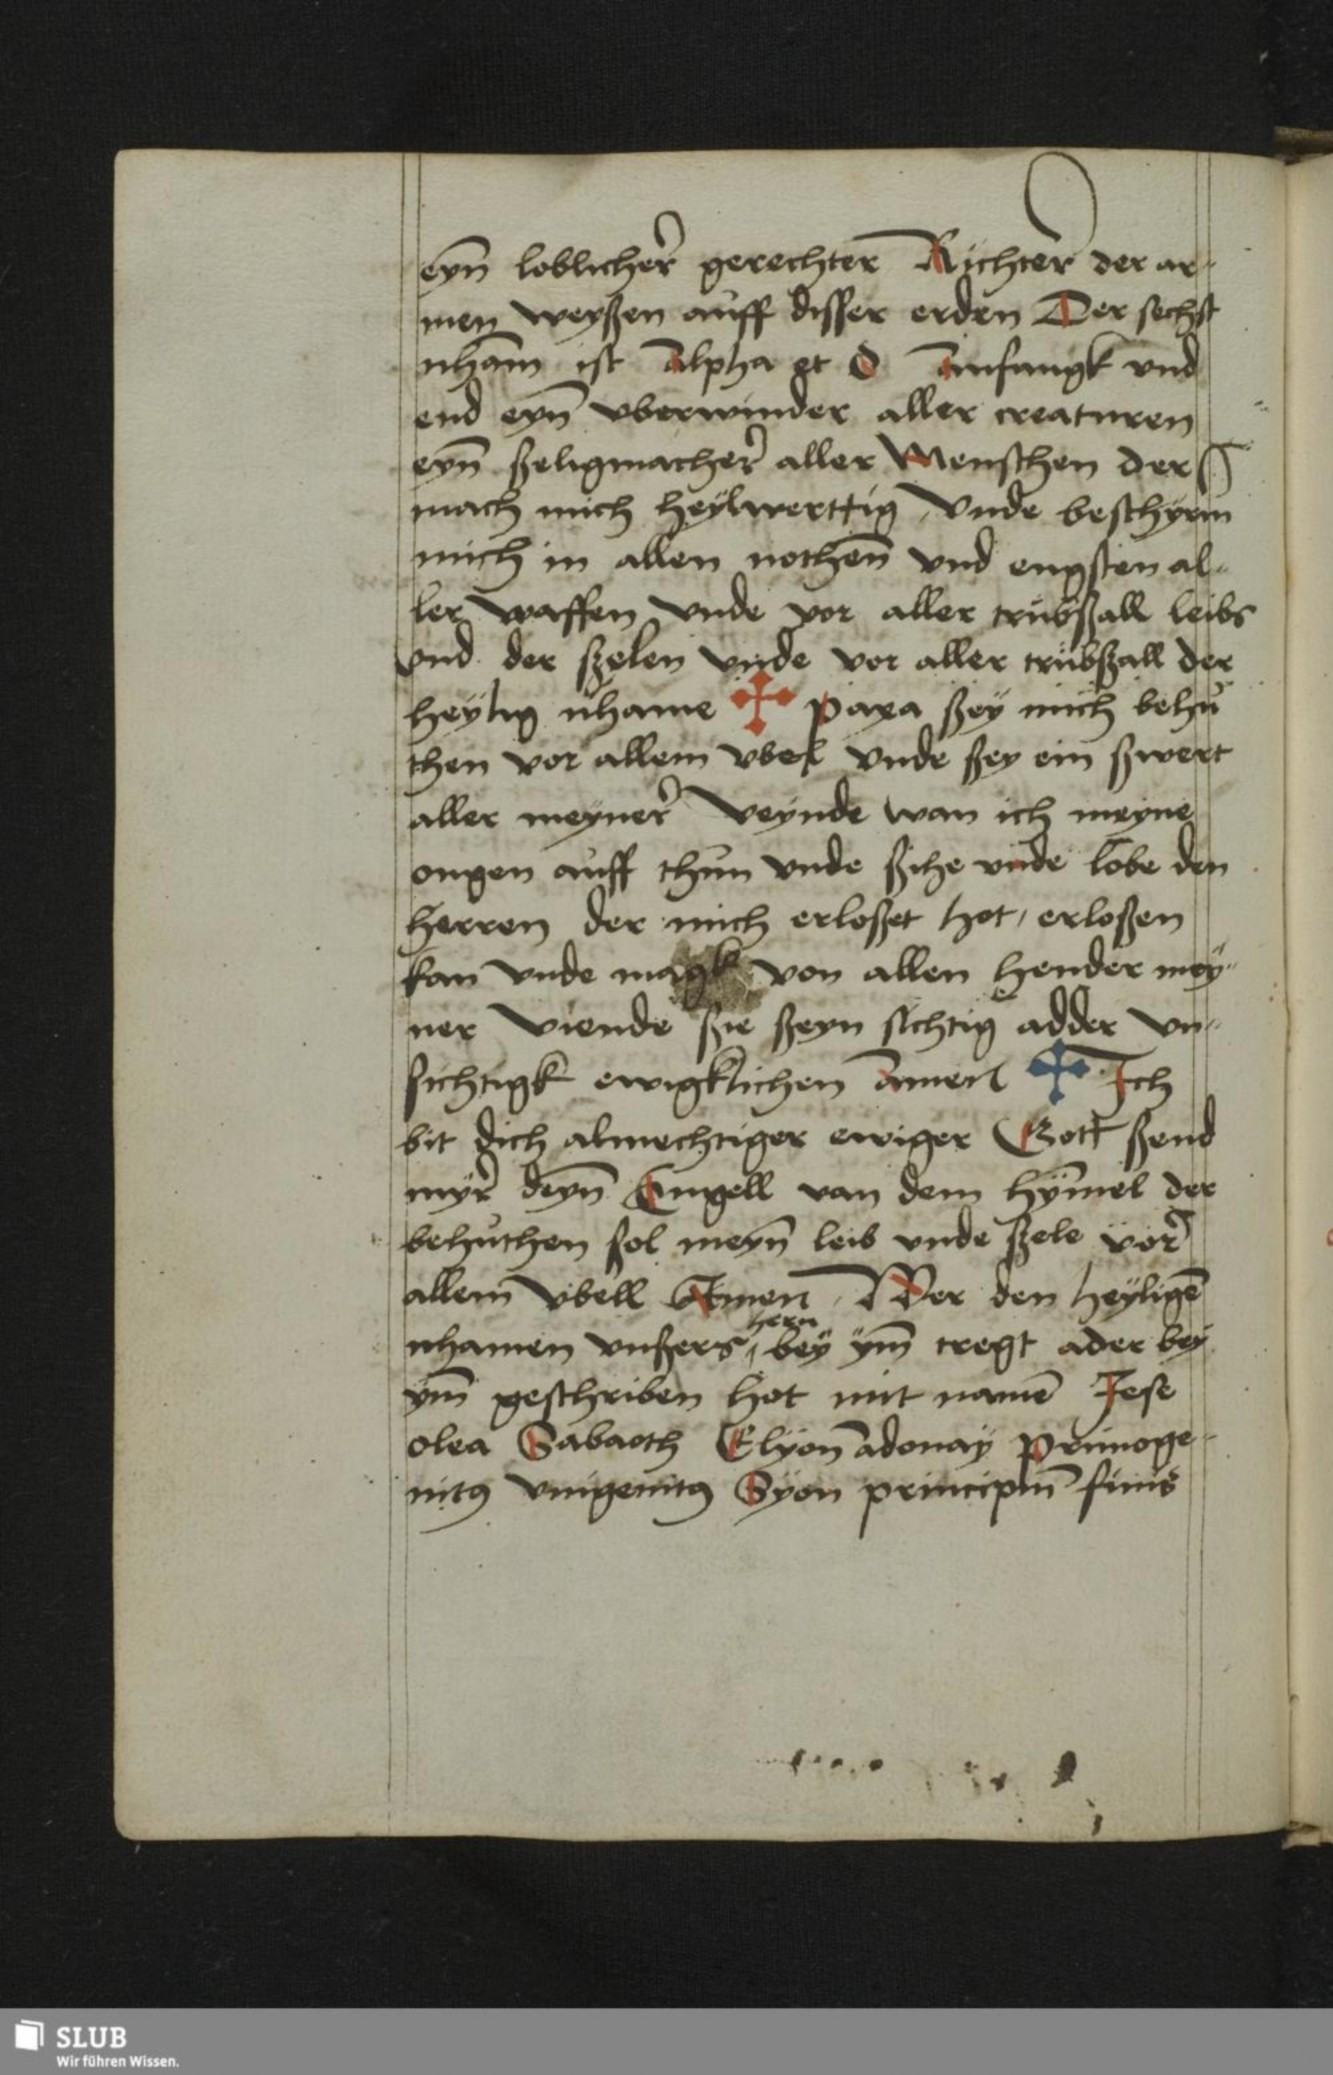 eyn̄ loblicher gerechter Richter der ar-
men weyßen auff disser erden Der sechst
nham̄ ist Alpha et O Anfangk vnd
end eyn̄ vberwinder aller creaturen
eyn̄ ßeligmacher aller Menschen der
mach mich heylwerttig vnde beschyrm
mich in allen nothen̄ vnd engsten al-
ler waffen vnde vor aller trubßall leibs
vnd der ßelen vnde vor aller trubßall der
heylig nhame ✠ paxa ßey mich behu
then vor allem vbel vnde ßey ein ßwert
aller meyner veynde wan ich meyne
ougen auff thun vnde ßihe vnde lobe den
herren der mich erloßet hot, erloßen
kan vnde magk von allen hender mey-
ner viende ßie ßeyn sichtig adder vn-
sichtigk ewigklichen Amen ✠ Ich
bit dich almechtiger ewiger Gott ßend
myr deyn̄ Engell van dem hym̄el der
behuthen sol meyn̄ leib vnde ßele vor
allem vbell Amen, Wer den heyligē
nhamen vnßers hern bey ym̄ tregt ader bey
ym̄ geschriben hot mit namē Jese
olea Sabaoth Elyon adonay Primoge-
nitꝰ vnigenitꝰ Syon principiū finis
SLUB
Wir führen Wissen.